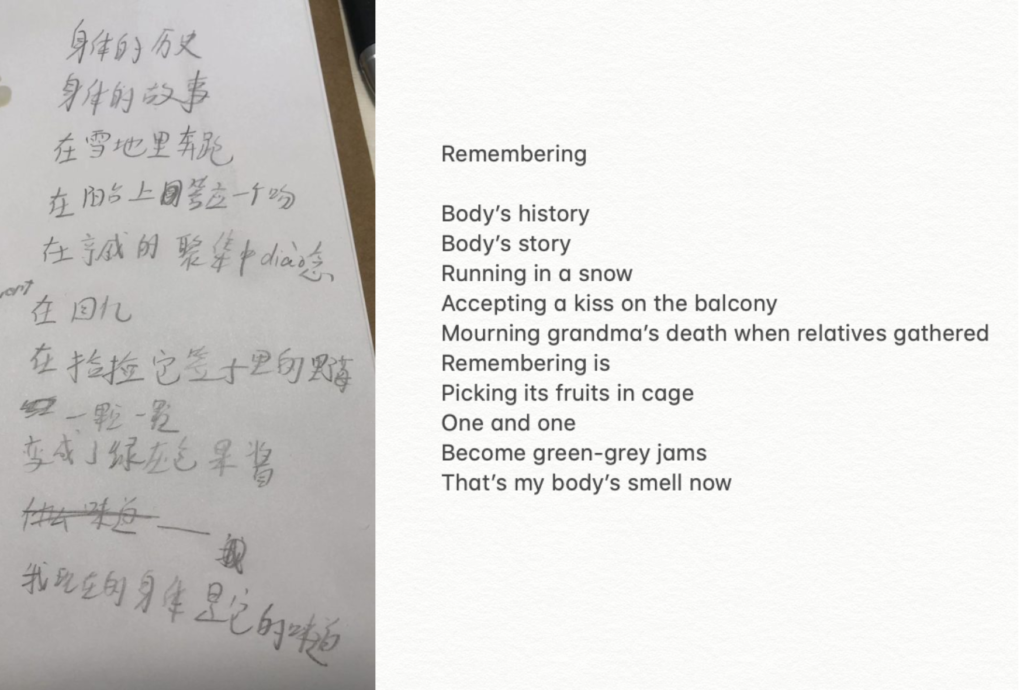 身体的历史
身体的故事
在雪地里奔跑
在阳台上答应一个吻
在亲戚的聚集中diào念
在回忆
在捡捡它笠子里的野莓
一颗一颗
变成了绿灰色果酱
什么味道——
我现在的身体是它的味道
Remembering
Body's history
Body's story
Running in a snow
Accepting a kiss on the balcony
Mourning grandma's death when relatives gathered
Remembering is
Picking its fruits in cage
One and one
Become green-grey jams
That's my body's smell now